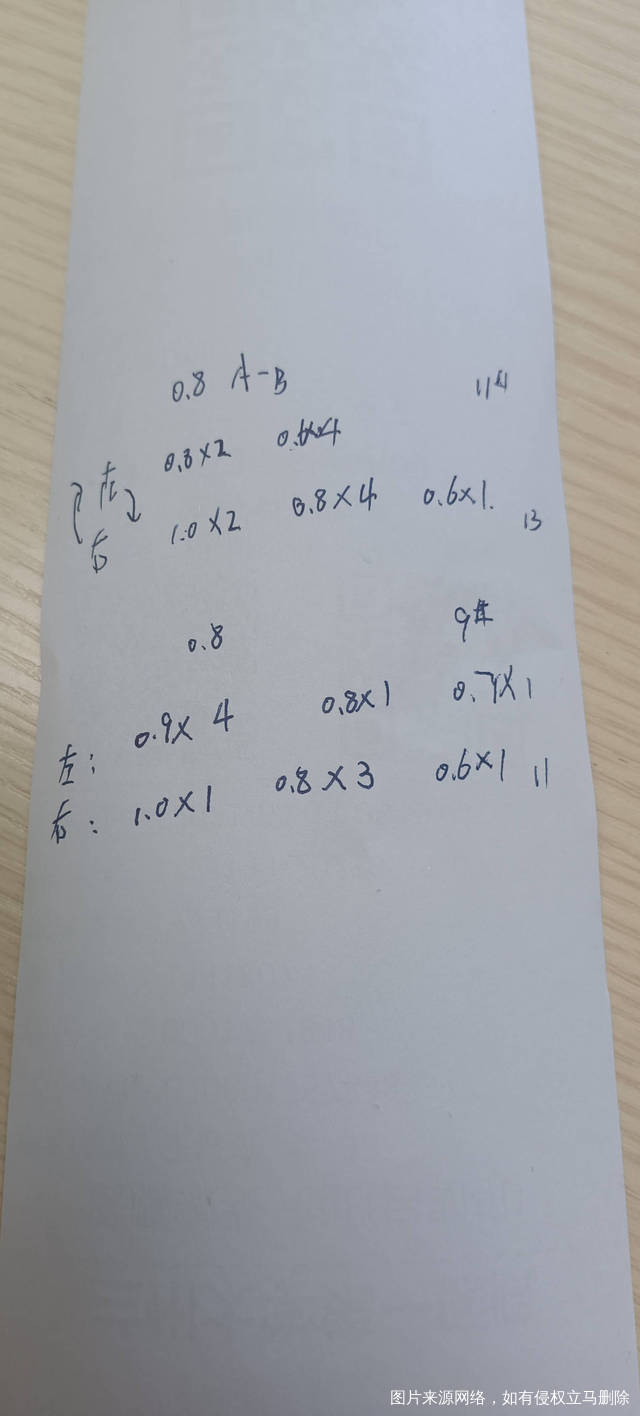 0.8 A-B 11#
左 0.8×2 0.6×4
右 1.0×2 0.8×4 0.6×1. 13
0.8 9#
左: 0.9× 4 0.8×1 0.7×1
右: 1.0×1 0.8×3 0.6×1 11
图片来源网络，如有侵权立马删除